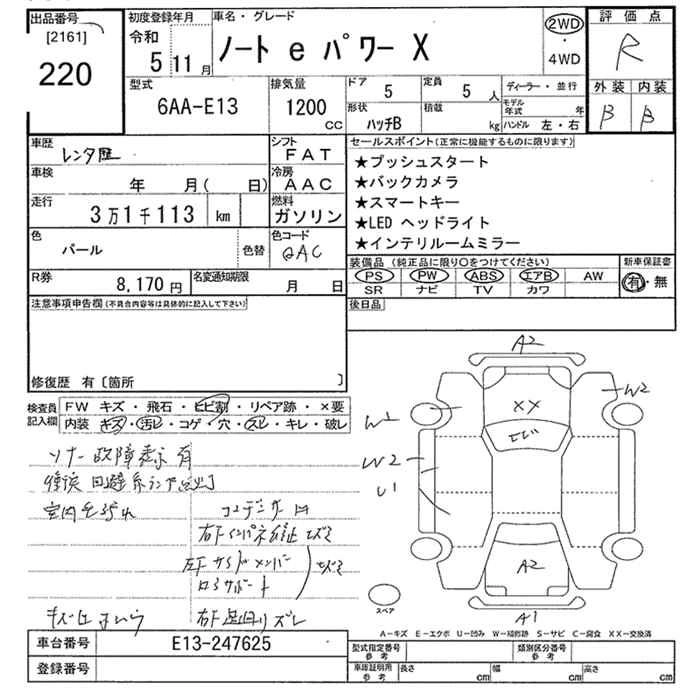 出品番号
[2161]
220
初度登録年月
令和
5 11月
車名・グレード
ノート e パワー X
2WD
・
4WD
評価点
R
型式
6AA-E13
排気量
1200
CC
ドア
5
定員
5 人
形状
ハッチB
積載
kg
ディーラー・並行
モデル年式 年
ハンドル 左・右
外装 内装
B B
車歴
レンタ歴
シフト
FAT
車検
年 月( 日)
冷房
AAC
走行
3万1千113 km
燃料
ガソリン
色
パール
色替
色コード
QAC
R券
8,170円
名変通知期限
月 日
セールスポイント(正常に機能するものに限ります)
★プッシュスタート
★バックカメラ
★スマートキー
★LED ヘッドライト
★インテリルームミラー
装備品 (純正品に限り○をつけてください)
PS PW ABS エアB AW
SR ナビ TV カワ
新車保証書
有・無
後日品
注意事項申告欄(不具合内容等は具体的に記入して下さい)
修復歴 有〔箇所 〕
検査員記入欄
FW キズ・飛石・ヒビ割・リペア跡・×要
内装 キズ・汚レ・コゲ・穴・スレ・キレ・破レ
ソナー故障表示 有
室内
コンデンサー
ズレ
A2
W2
XX
ヒビ
W1
W2
U1
A2
A1
スペア
A-キズ E-エクボ U-凹み W-補修跡 S-サビ C-腐食 XX-交換済
車台番号
E13-247625
登録番号
型式指定番号
参考
類別区分番号
参考
車庫証明用
参考
長さ cm
幅 cm
高さ cm